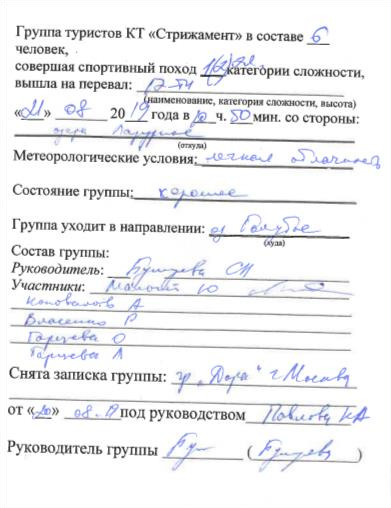 Группа туристов КТ «Стрижамент» в составе 6
человек,
совершая спортивный поход категории сложности,
вышла на перевал:
(наименование, категория сложности, высота)
«21» 08 2019 года в 10 ч. 50 мин. со стороны:
озера Лазурное
(откуда)
Метеорологические условия: легкая облачность
Состояние группы: хорошее
Группа уходит в направлении: оз Голубое
(куда)
Состав группы:
Руководитель:
Участники: Ю
Коновалов А
Власенко Р
Гарцуева О
Гарцуева Л
Снята записка группы: гр „Дора“ г. Москва
от «20» 08.19 под руководством Павлова КА
Руководитель группы ( )